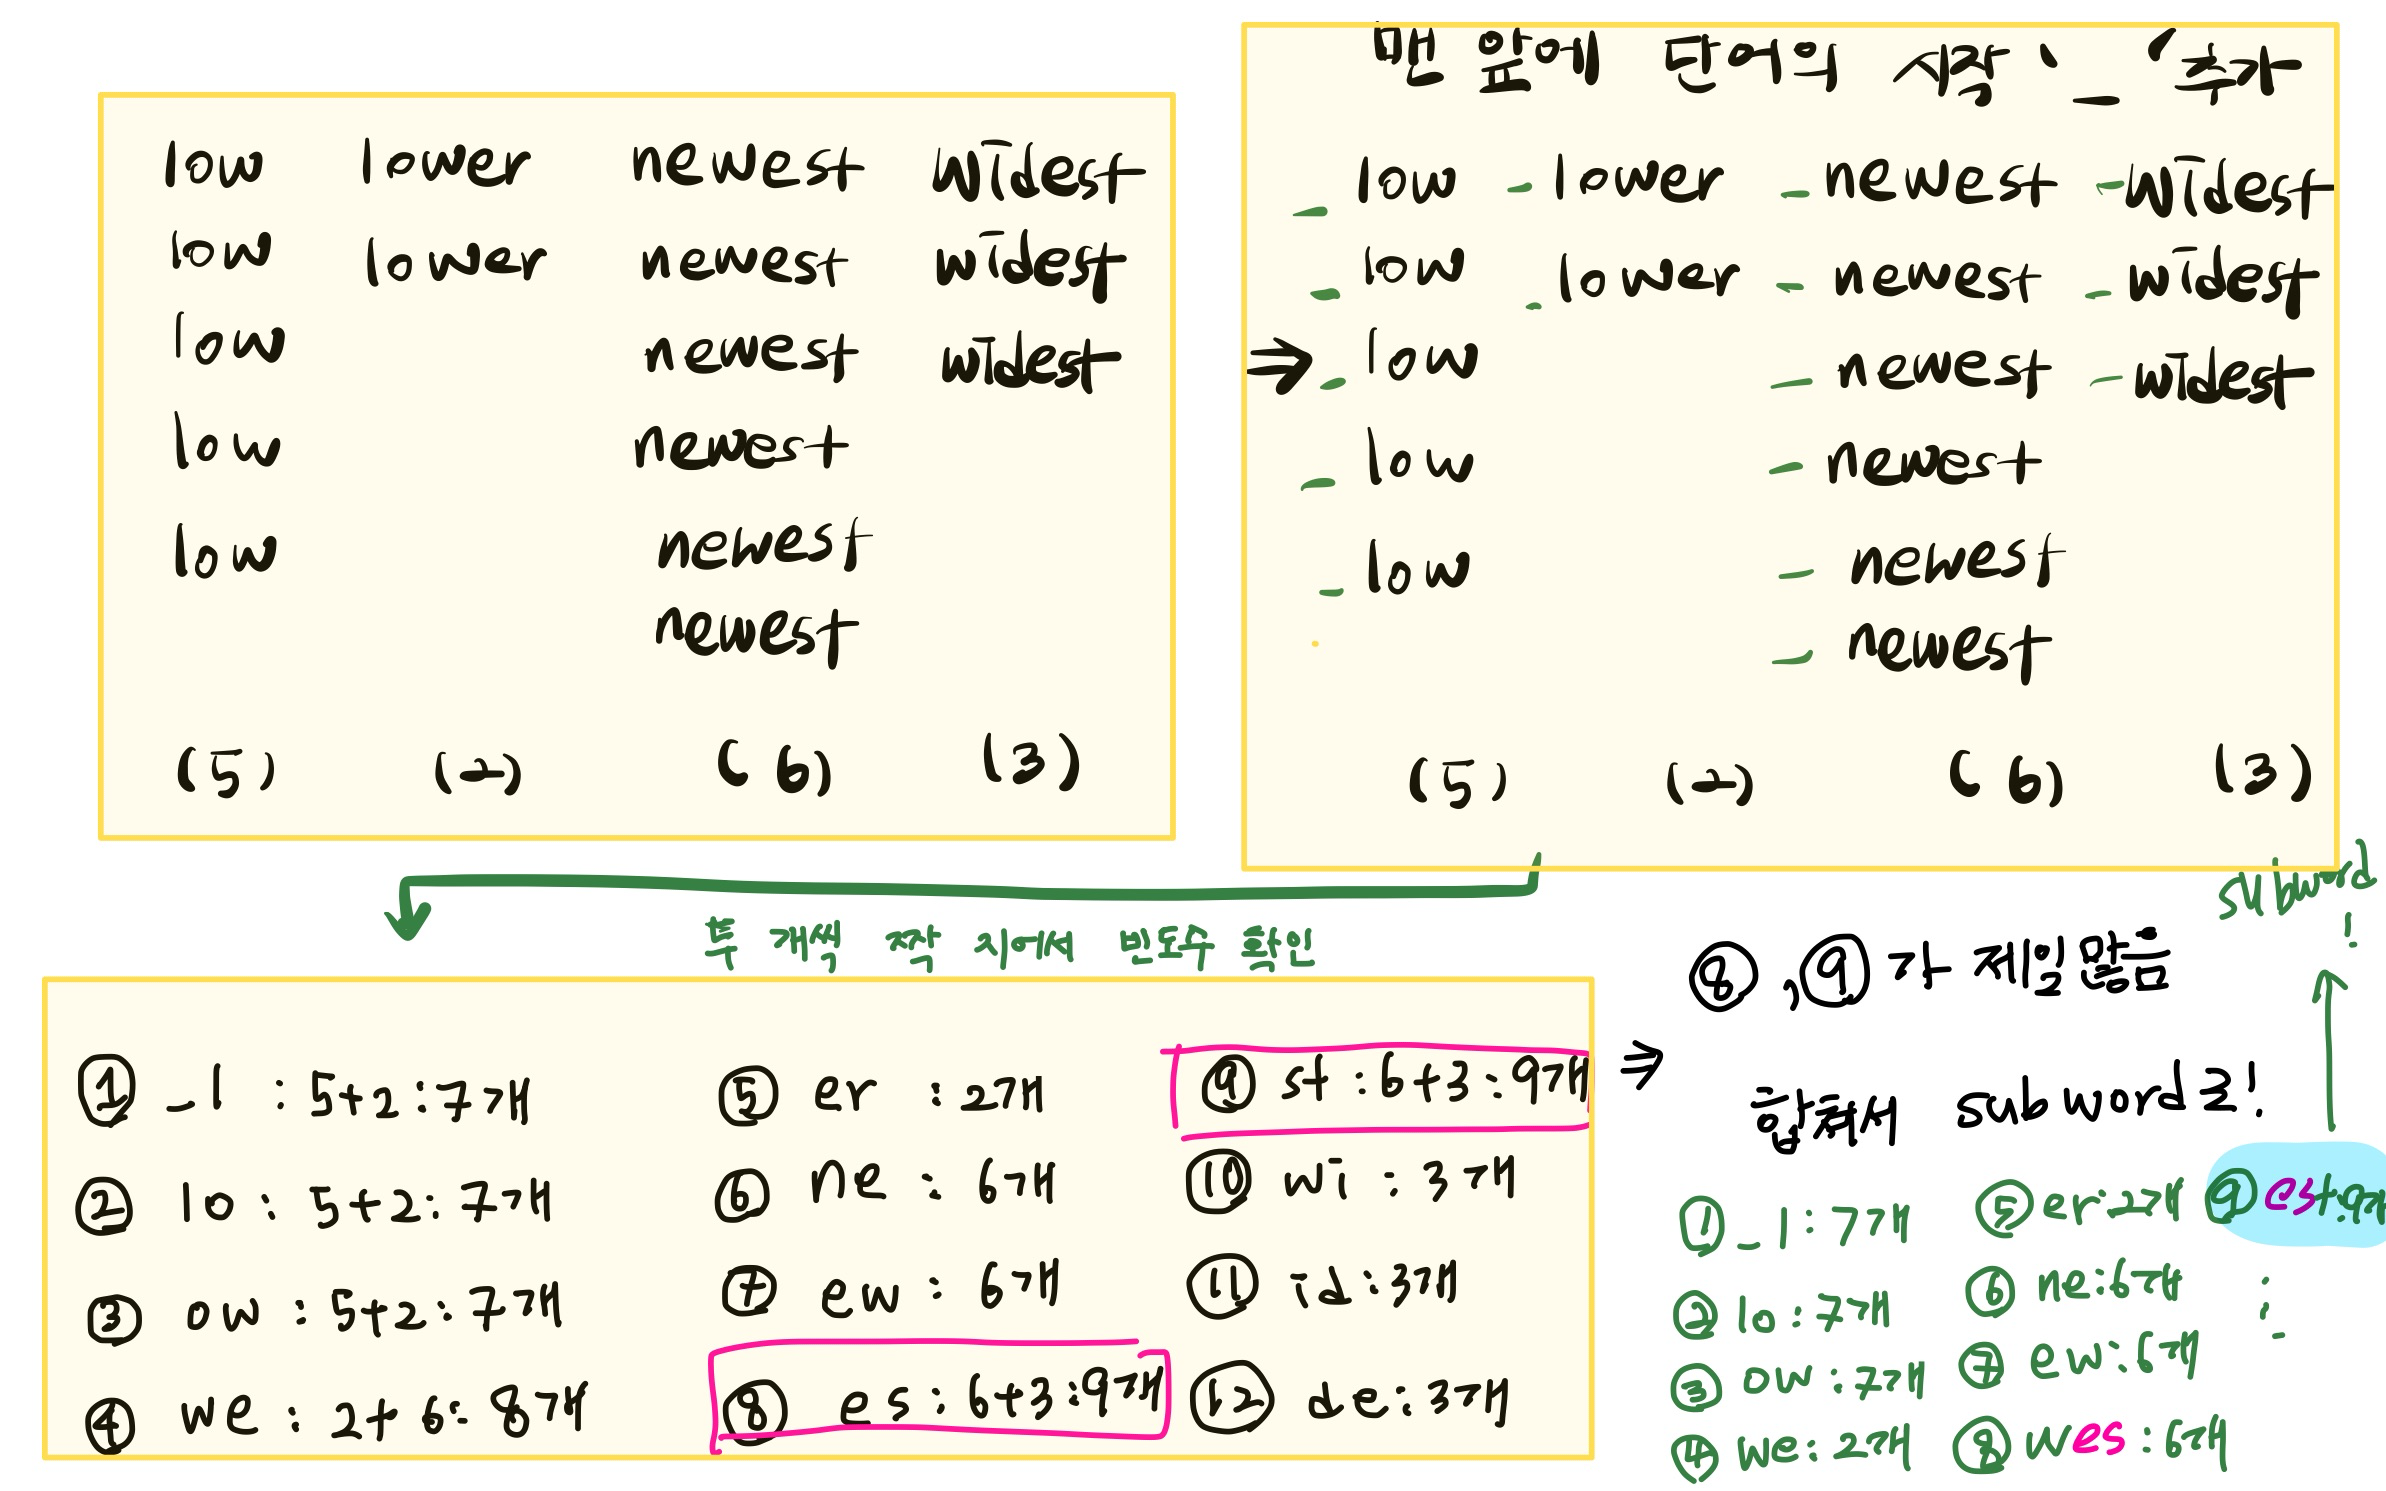 low lower newest widest
low lower newest widest
low newest widest
low newest
low newest
newest
(5) (2) (6) (3)
맨 앞에 단어의 시작 '_' 추가
_low _lower _newest _widest
_low _lower _newest _widest
→ _low _newest _widest
_low _newest
_low _newest
_newest
(5) (2) (6) (3)
두 개씩 짝 지어서 빈도수 확인
① _l : 5+2 : 7개
② lo : 5+2 : 7개
③ ow : 5+2 : 7개
④ we : 2+6 : 8개
⑤ er : 2개
⑥ ne : 6개
⑦ ew : 6개
⑧ es : 6+3 : 9개
⑨ st : 6+3 : 9개
⑩ wi : 3개
⑪ id : 3개
⑫ de : 3개
⇒ ⑧, ⑨가 제일 많음
합쳐서 subword로!
① _l : 7개
② lo : 7개
③ ow : 7개
④ we : 2개
⑤ er : 2개
⑥ ne : 6개
⑦ ew : 6개
⑧ wes : 6개
⑨ est : 9개
⋮
subword
!